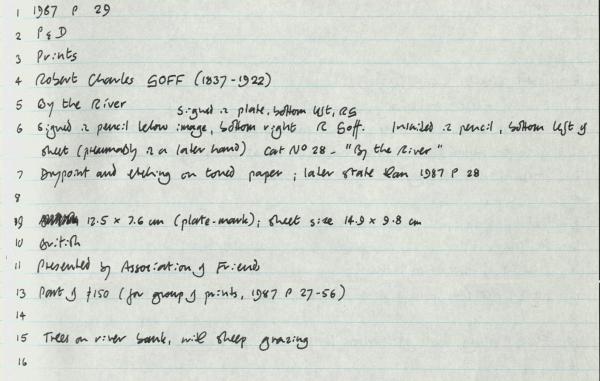 1 1987 P 29
2 P & D
3 Prints
4 Robert Charles GOFF (1837-1922)
5 By the River
signed in plate, bottom left, RG
6 Signed in pencil below image, bottom right R Goff. Inscribed in pencil, bottom left of
sheet (presumably in a later hand) Cat No 28 - "By the River"
7 Drypoint and etching on toned paper; later state than 1987 P 28
8
9 12.5 x 7.6 cm (plate-mark); sheet size 14.9 x 9.8 cm
10 British
11 Presented by Association of Friends
13 Part of £150 (for group of prints, 1987 P 27-56)
14
15 Trees on river bank, with sheep grazing
16